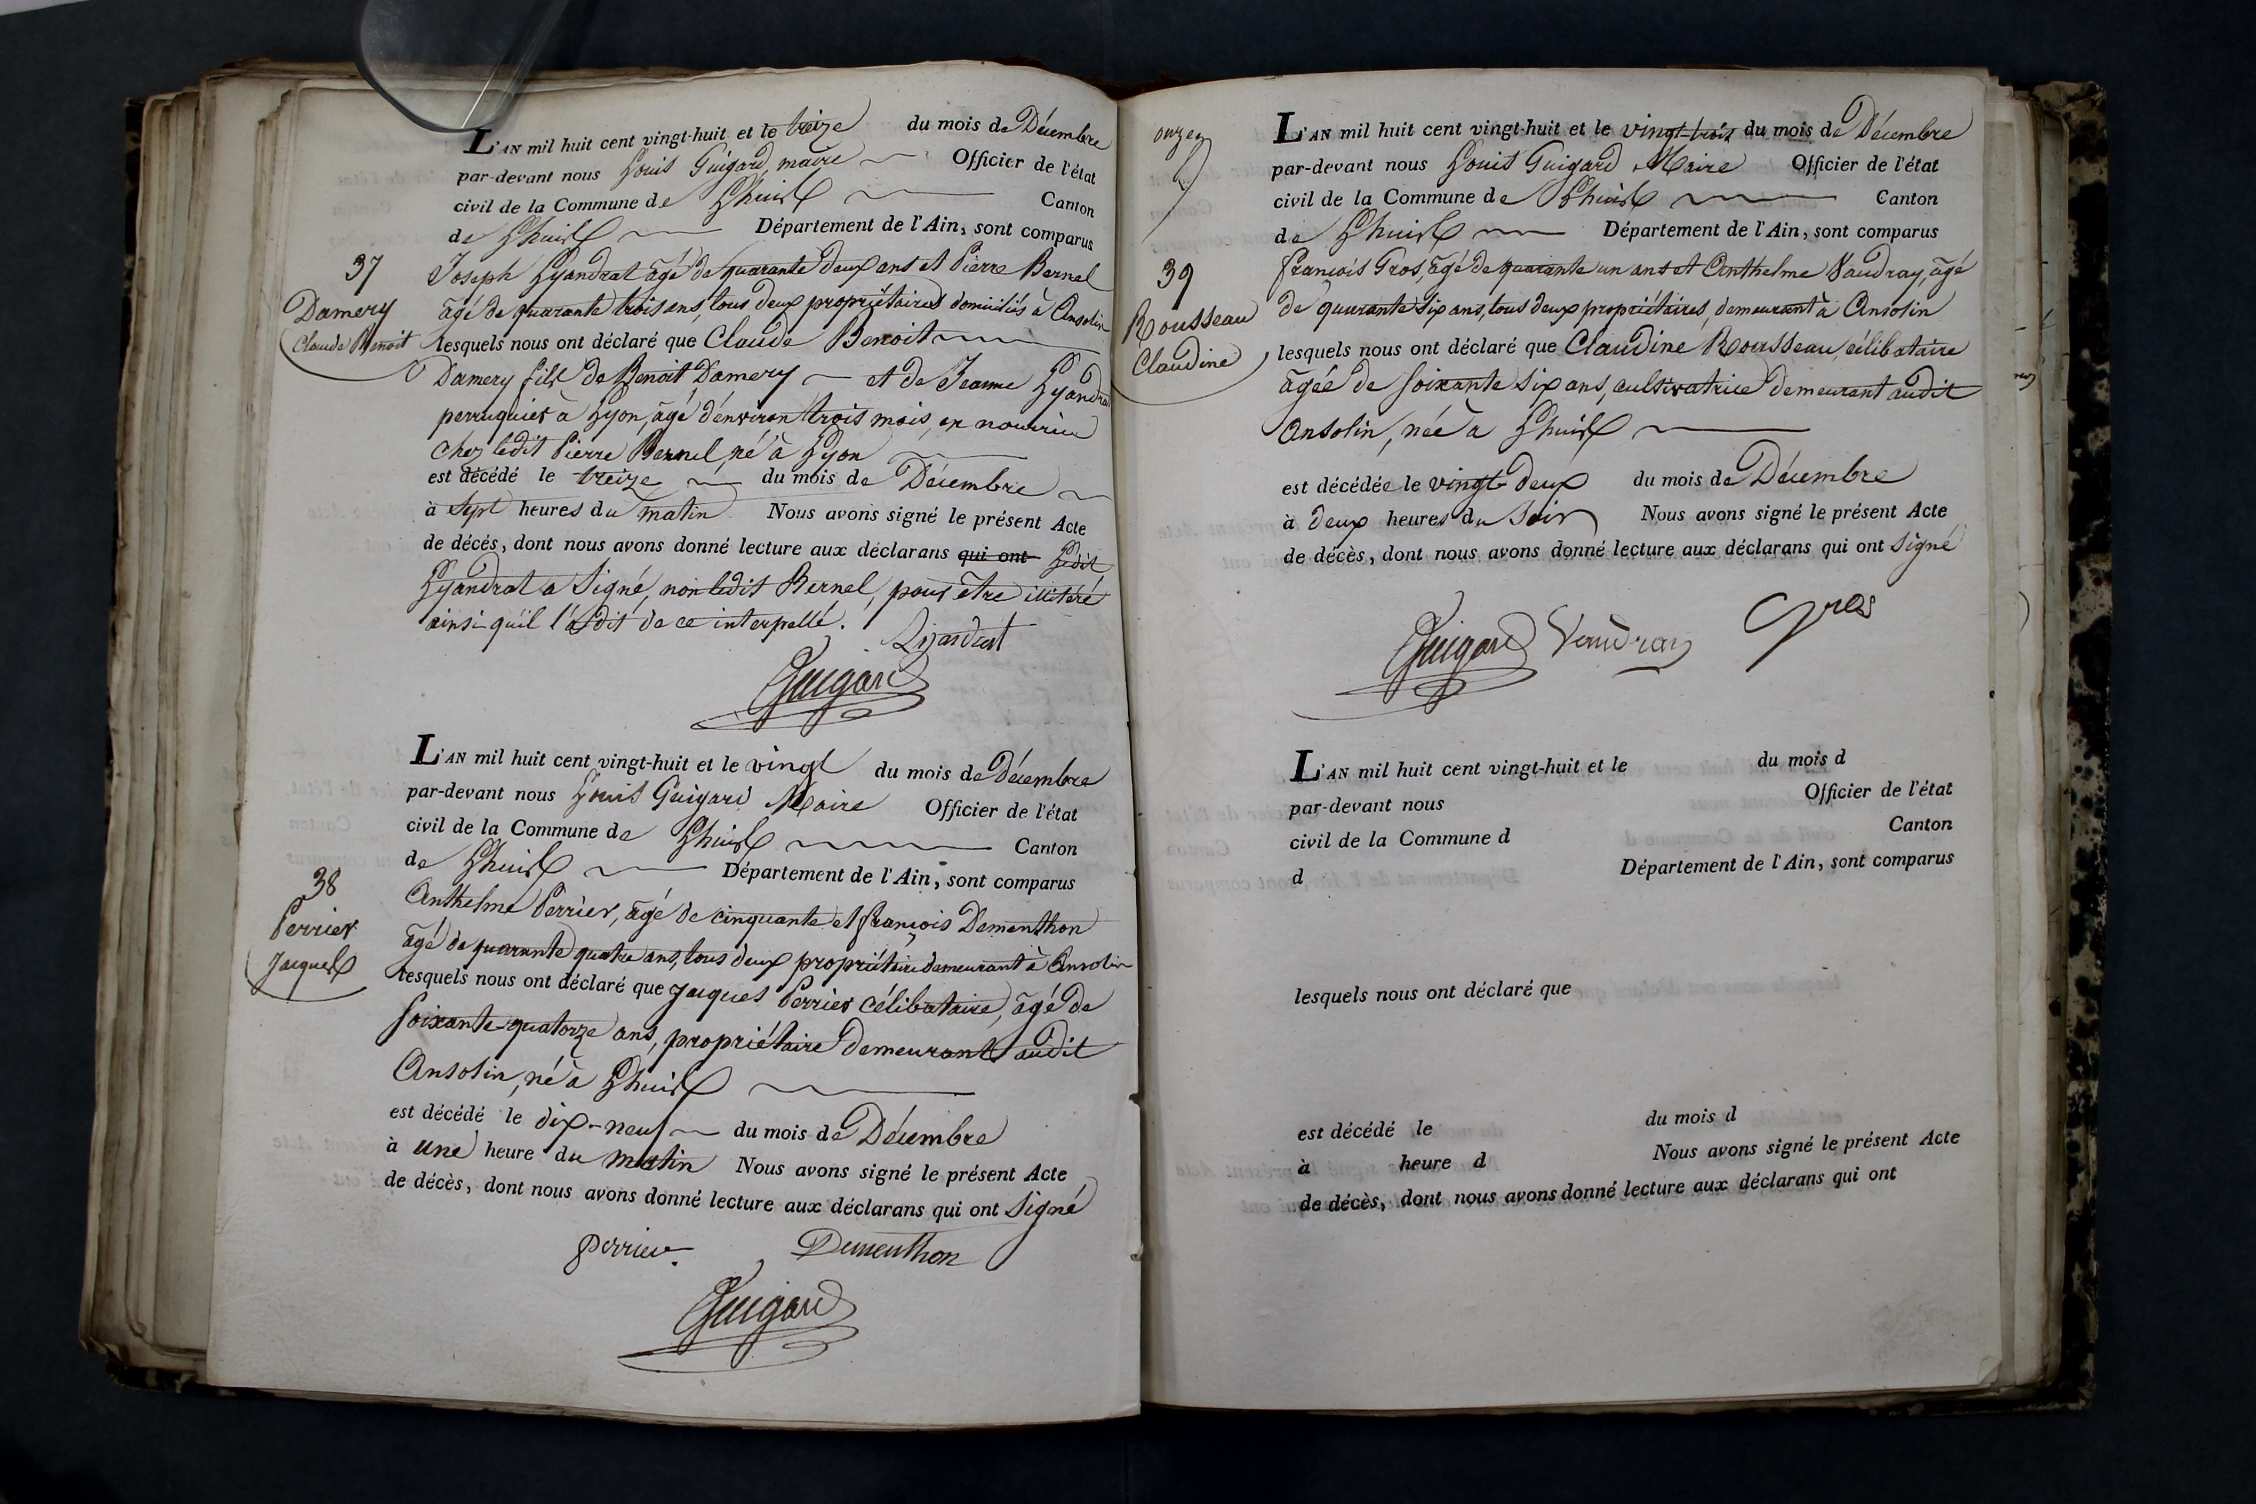 L'AN mil huit cent vingt-huit et le treize du mois de Décembre
par-devant nous Louis Guigard, maire Officier de l'état
civil de la Commune de Lhuis Canton
de Lhuis Département de l'Ain, sont comparus
37
Damery
Claude Benoit
Joseph Lyandrat âgé de quarante deux ans et Pierre Bernel
âgé de quarante trois ans, tous deux propriétaires domiciliés à Ansolin
lesquels nous ont déclaré que Claude Benoit
Damery fils de Benoit Damery et de Jeanne Lyandrat
perruquier à Lyon, âgé d'environ trois mois, en nourrice
chez ledit Pierre Bernel, né à Lyon
est décédé le treize du mois de Décembre
à sept heures du matin Nous avons signé le présent Acte
de décés, dont nous avons donné lecture aux déclarans qui ont Ledit
Lyandrat a signé, non ledit Bernel, pour être illitéré
ainsi qu'il l'a dit de ce interpellé.
Lyandrat
Guigard
L'AN mil huit cent vingt-huit et le vingt du mois de Décembre
par-devant nous Louis Guigard Maire Officier de l'état
civil de la Commune de Lhuis Canton
de Lhuis Département de l'Ain, sont comparus
38
Perrier
Jacques
Anthelme Perrier, âgé de cinquante et françois Dementhon
âgé de quarante quatre ans, tous deux propriétaire demeurant à Ansolin
lesquels nous ont déclaré que Jacques Perrier célibataire, âgé de
soixante-quatorze ans, propriétaire demeurant audit
Ansolin, né à Lhuis
est décédé le dix-neuf du mois de Décembre
à une heure du matin Nous avons signé le présent Acte
de décès, dont nous avons donné lecture aux déclarans qui ont signé
perrier Dementhon
Guigard
onze
L'AN mil huit cent vingt-huit et le vingt-trois du mois de Décembre
par-devant nous Louis Guigard Maire Officier de l'état
civil de la Commune de Lhuis Canton
de Lhuis Département de l'Ain, sont comparus
39
Rousseau
Claudine
françois Gros, âgé de quarante un ans et Anthelme Vaudray, âgé
de quarante six ans, tous deux propriétaires, demeurant à Ansolin
lesquels nous ont déclaré que Claudine Rousseau, célibataire
âgée de soixante six ans, cultivatrice demeurant audit
Ansolin, née à Lhuis
est décédée le vingt-deux du mois de Décembre
à deux heures du soir Nous avons signé le présent Acte
de décès, dont nous avons donné lecture aux déclarans qui ont signé
Guigard Vaudray Gros
L'AN mil huit cent vingt-huit et le du mois d
par-devant nous Officier de l'état
civil de la Commune d Canton
d Département de l'Ain, sont comparus
lesquels nous ont déclaré que
est décédé le du mois d
à heure d Nous avons signé le présent Acte
de décès, dont nous avons donné lecture aux déclarans qui ont